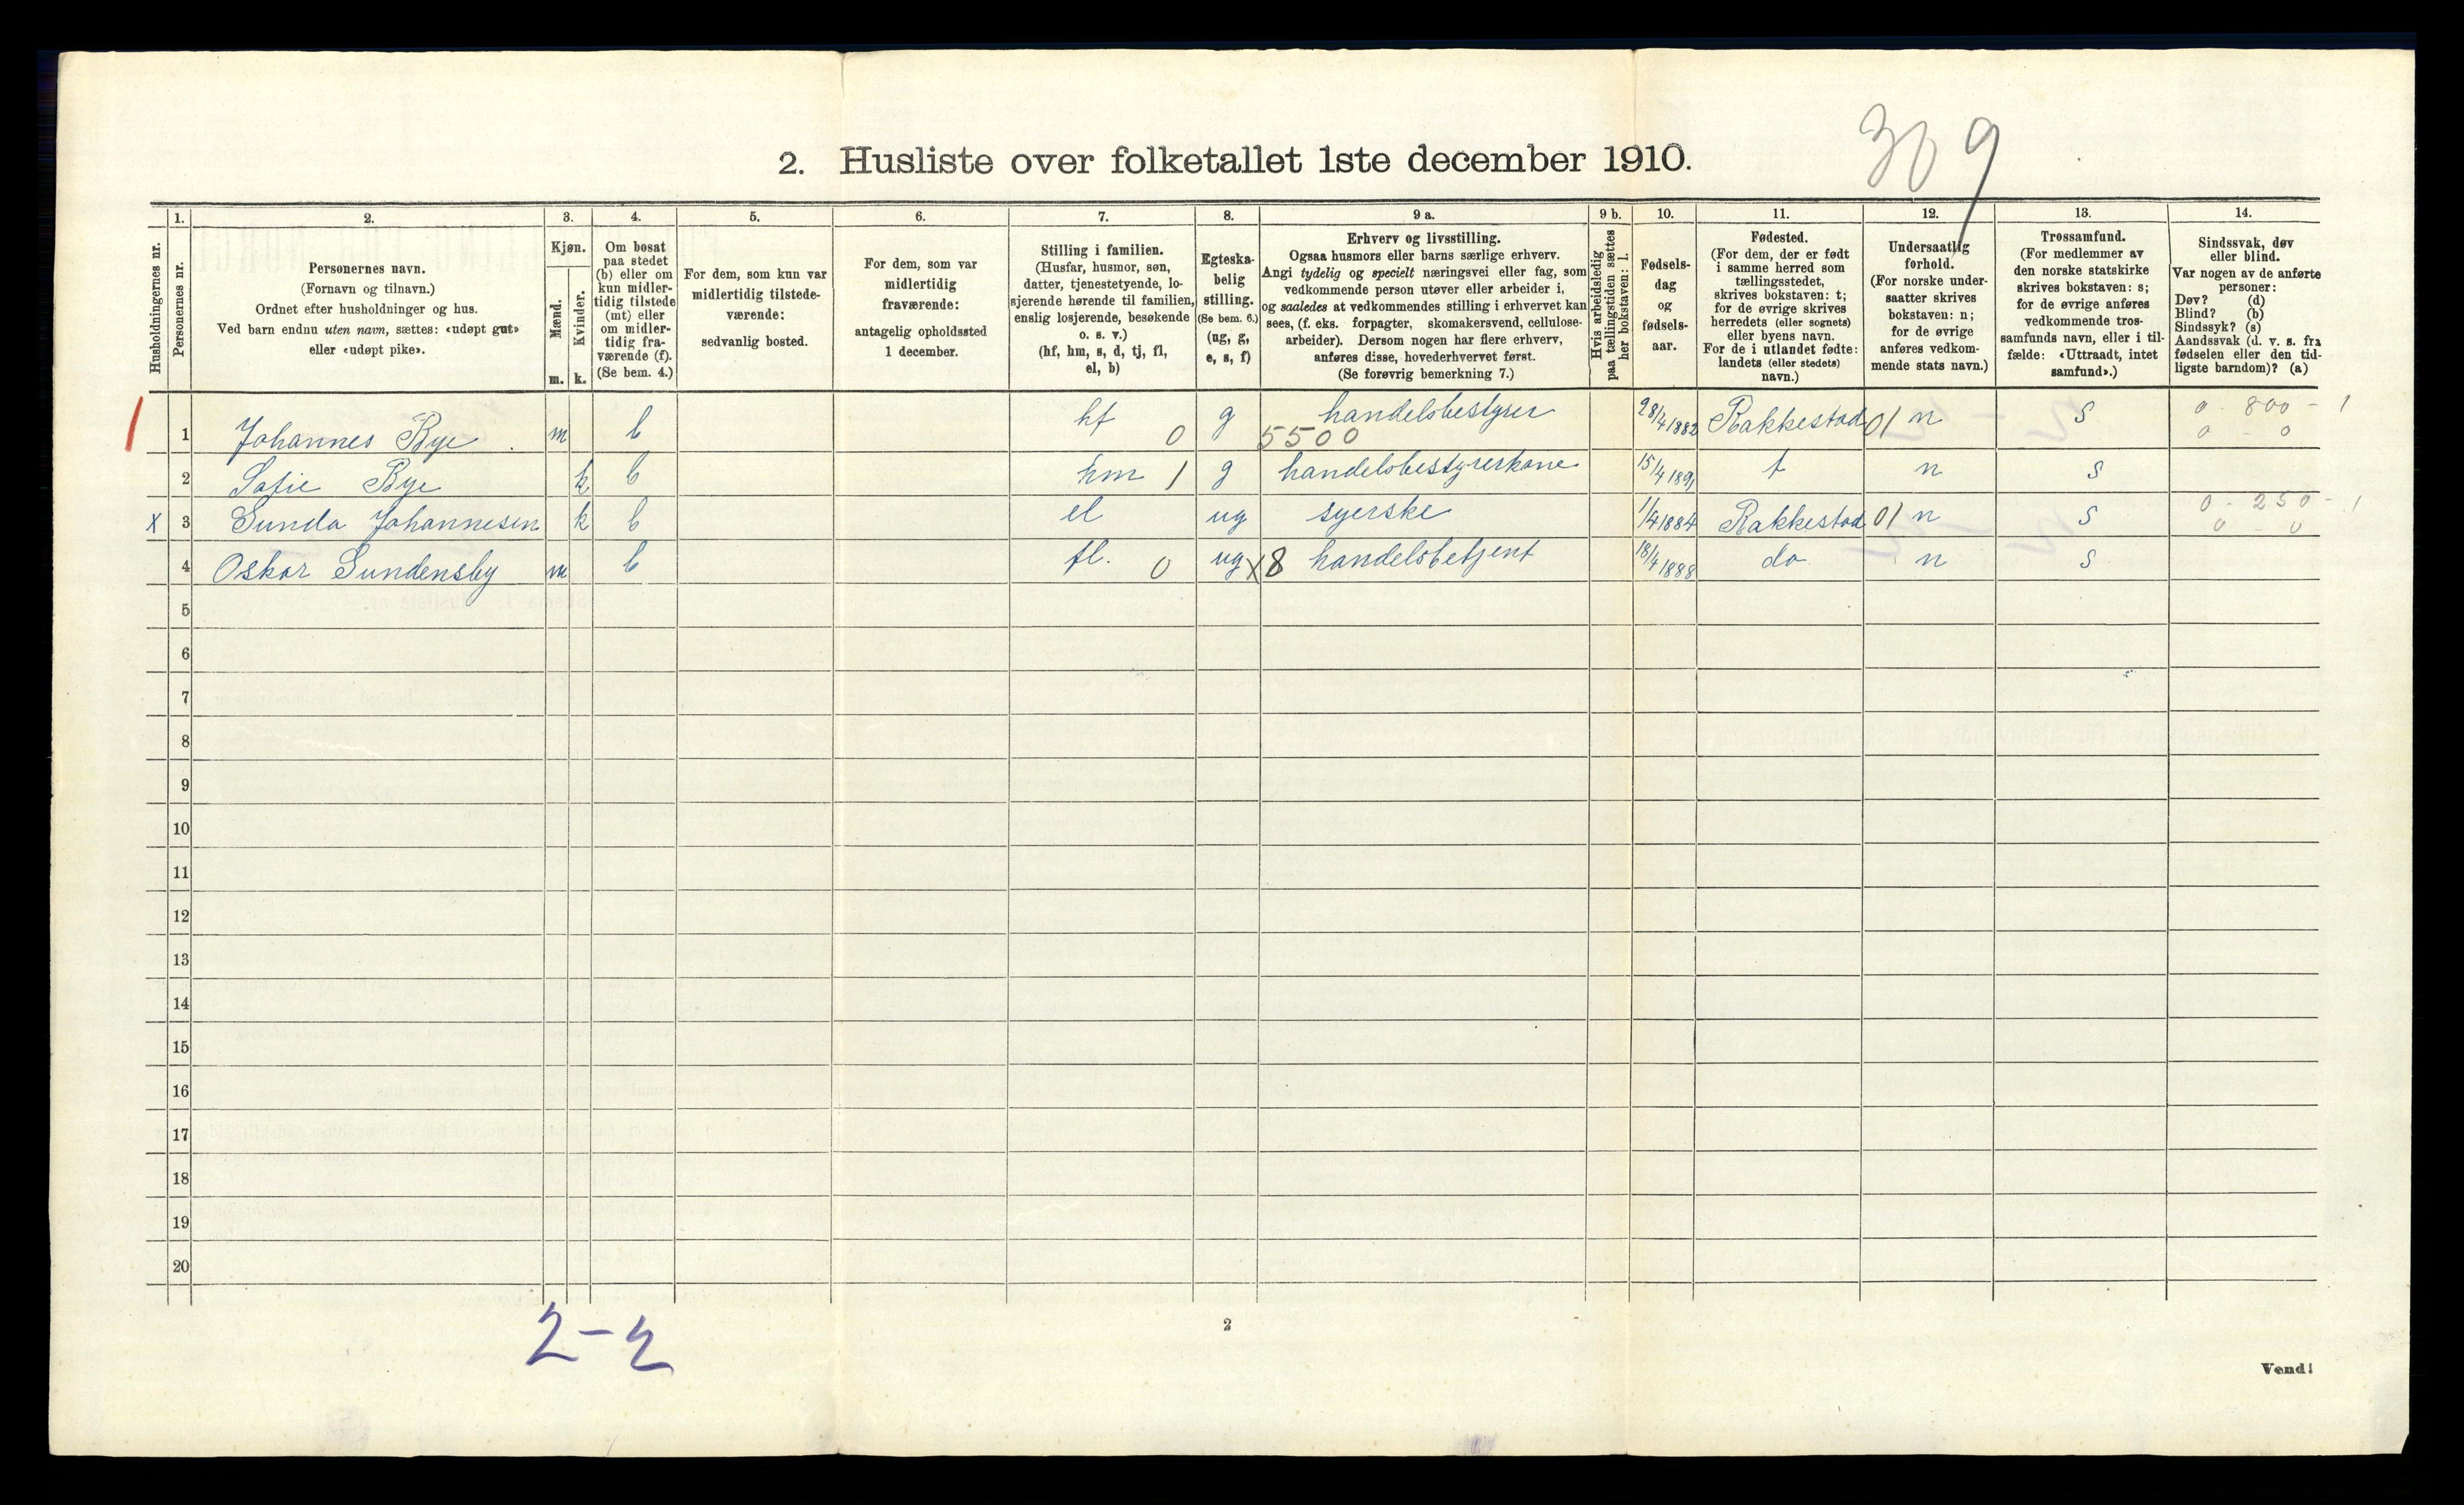 309
2. Husliste over folketallet 1ste december 1910.
Husholdningernes nr.
1.
Personernes nr.
2.
Personernes navn.
(Fornavn og tilnavn.)
Ordnet efter husholdninger og hus.
Ved barn endnu uten navn, sættes: «udøpt gut»
eller «udøpt pike».
3.
Kjøn.
Mænd.
m.
Kvinder.
k.
4.
Om bosat
paa stedet
(b) eller om
kun midler-
tidig tilstede
(mt) eller
om midler-
tidig fra-
værende (f).
(Se bem. 4.)
5.
For dem, som kun var
midlertidig tilstede-
værende:
sedvanlig bosted.
6.
For dem, som var
midlertidig
fraværende:
antagelig opholdssted
1 december.
7.
Stilling i familien.
(Husfar, husmor, søn,
datter, tjenestetyende, lo-
sjerende hørende til familien,
enslig losjerende, besøkende
o. s. v.)
(hf, hm, s, d, tj, fl,
el, b)
8.
Egteska-
belig
stilling.
(Se bem. 6.)
(ug, g,
e, s, f)
9 a.
Erhverv og livsstilling.
Ogsaa husmors eller barns særlige erhverv.
Angi tydelig og specielt næringsvei eller fag, som
vedkommende person utøver eller arbeider i,
og saaledes at vedkommendes stilling i erhvervet kan
sees, (f. eks. forpagter, skomakersvend, cellulose-
arbeider). Dersom nogen har flere erhverv,
anføres disse, hovederhvervet først.
(Se forøvrig bemerkning 7.)
9 b.
Hvis arbeidsledig
paa tællingstiden sættes
her bokstaven: l.
10.
Fødsels-
dag
og
fødsels-
aar.
11.
Fødested.
(For dem, der er født
i samme herred som
tællingsstedet,
skrives bokstaven: t;
for de øvrige skrives
herredets (eller sognets)
eller byens navn.
For de i utlandet fødte:
landets (eller stedets)
navn.)
12.
Undersaatlig
forhold.
(For norske under-
saatter skrives
bokstaven: n;
for de øvrige
anføres vedkom-
mende stats navn.)
13.
Trossamfund.
(For medlemmer av
den norske statskirke
skrives bokstaven: s;
for de øvrige anføres
vedkommende tros-
samfunds navn, eller i til-
fælde: «Uttraadt, intet
samfund».)
14.
Sindssvak, døv
eller blind.
Var nogen av de anførte
personer:
Døv? (d)
Blind? (b)
Sindssyk? (s)
Aandssvak (d. v. s. fra
fødselen eller den tid-
ligste barndom)? (a)
1 1 Johannes Bye m b hf 0 g handelsbestyrer 5500 28/4 1882 Rakkestad 01 n s 0 - 800 - 1
0 - 0
2 Sofie Bye k b hm 1 g handelsbestyrerkone 15/4 1891 t n s
x 3 Gunda Johannesen k b el ug syerske 1/4 1884 Rakkestad 01 n s 0 - 250 - 1
0 - 0
4 Oskar Gundensby m b fl. 0 ug x8 handelsbetjent 18/4 1888 do n s
5
6
7
8
9
10
11
12
13
14
15
16
17
18
19
20
2-2
2
Vend!